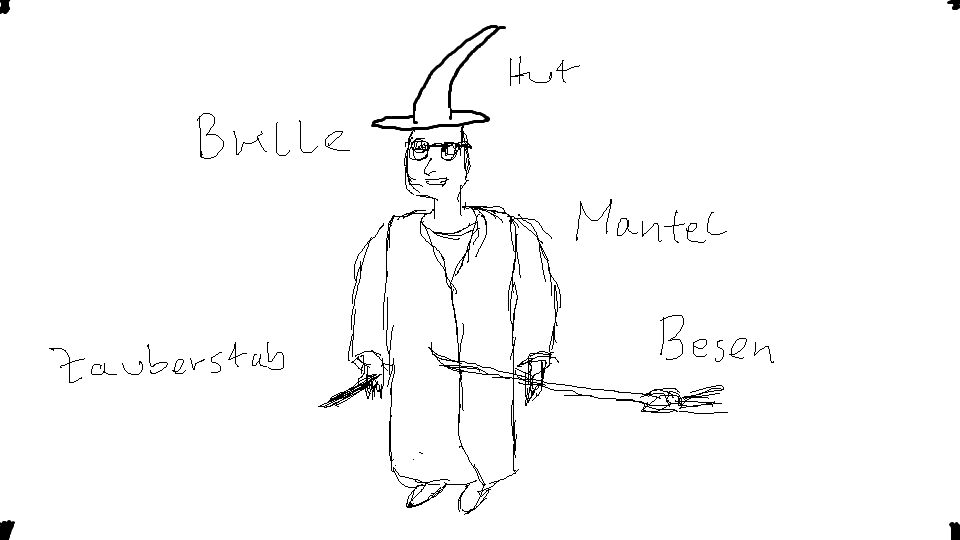 Hut
Brille
Mantel
Zauberstab
Besen